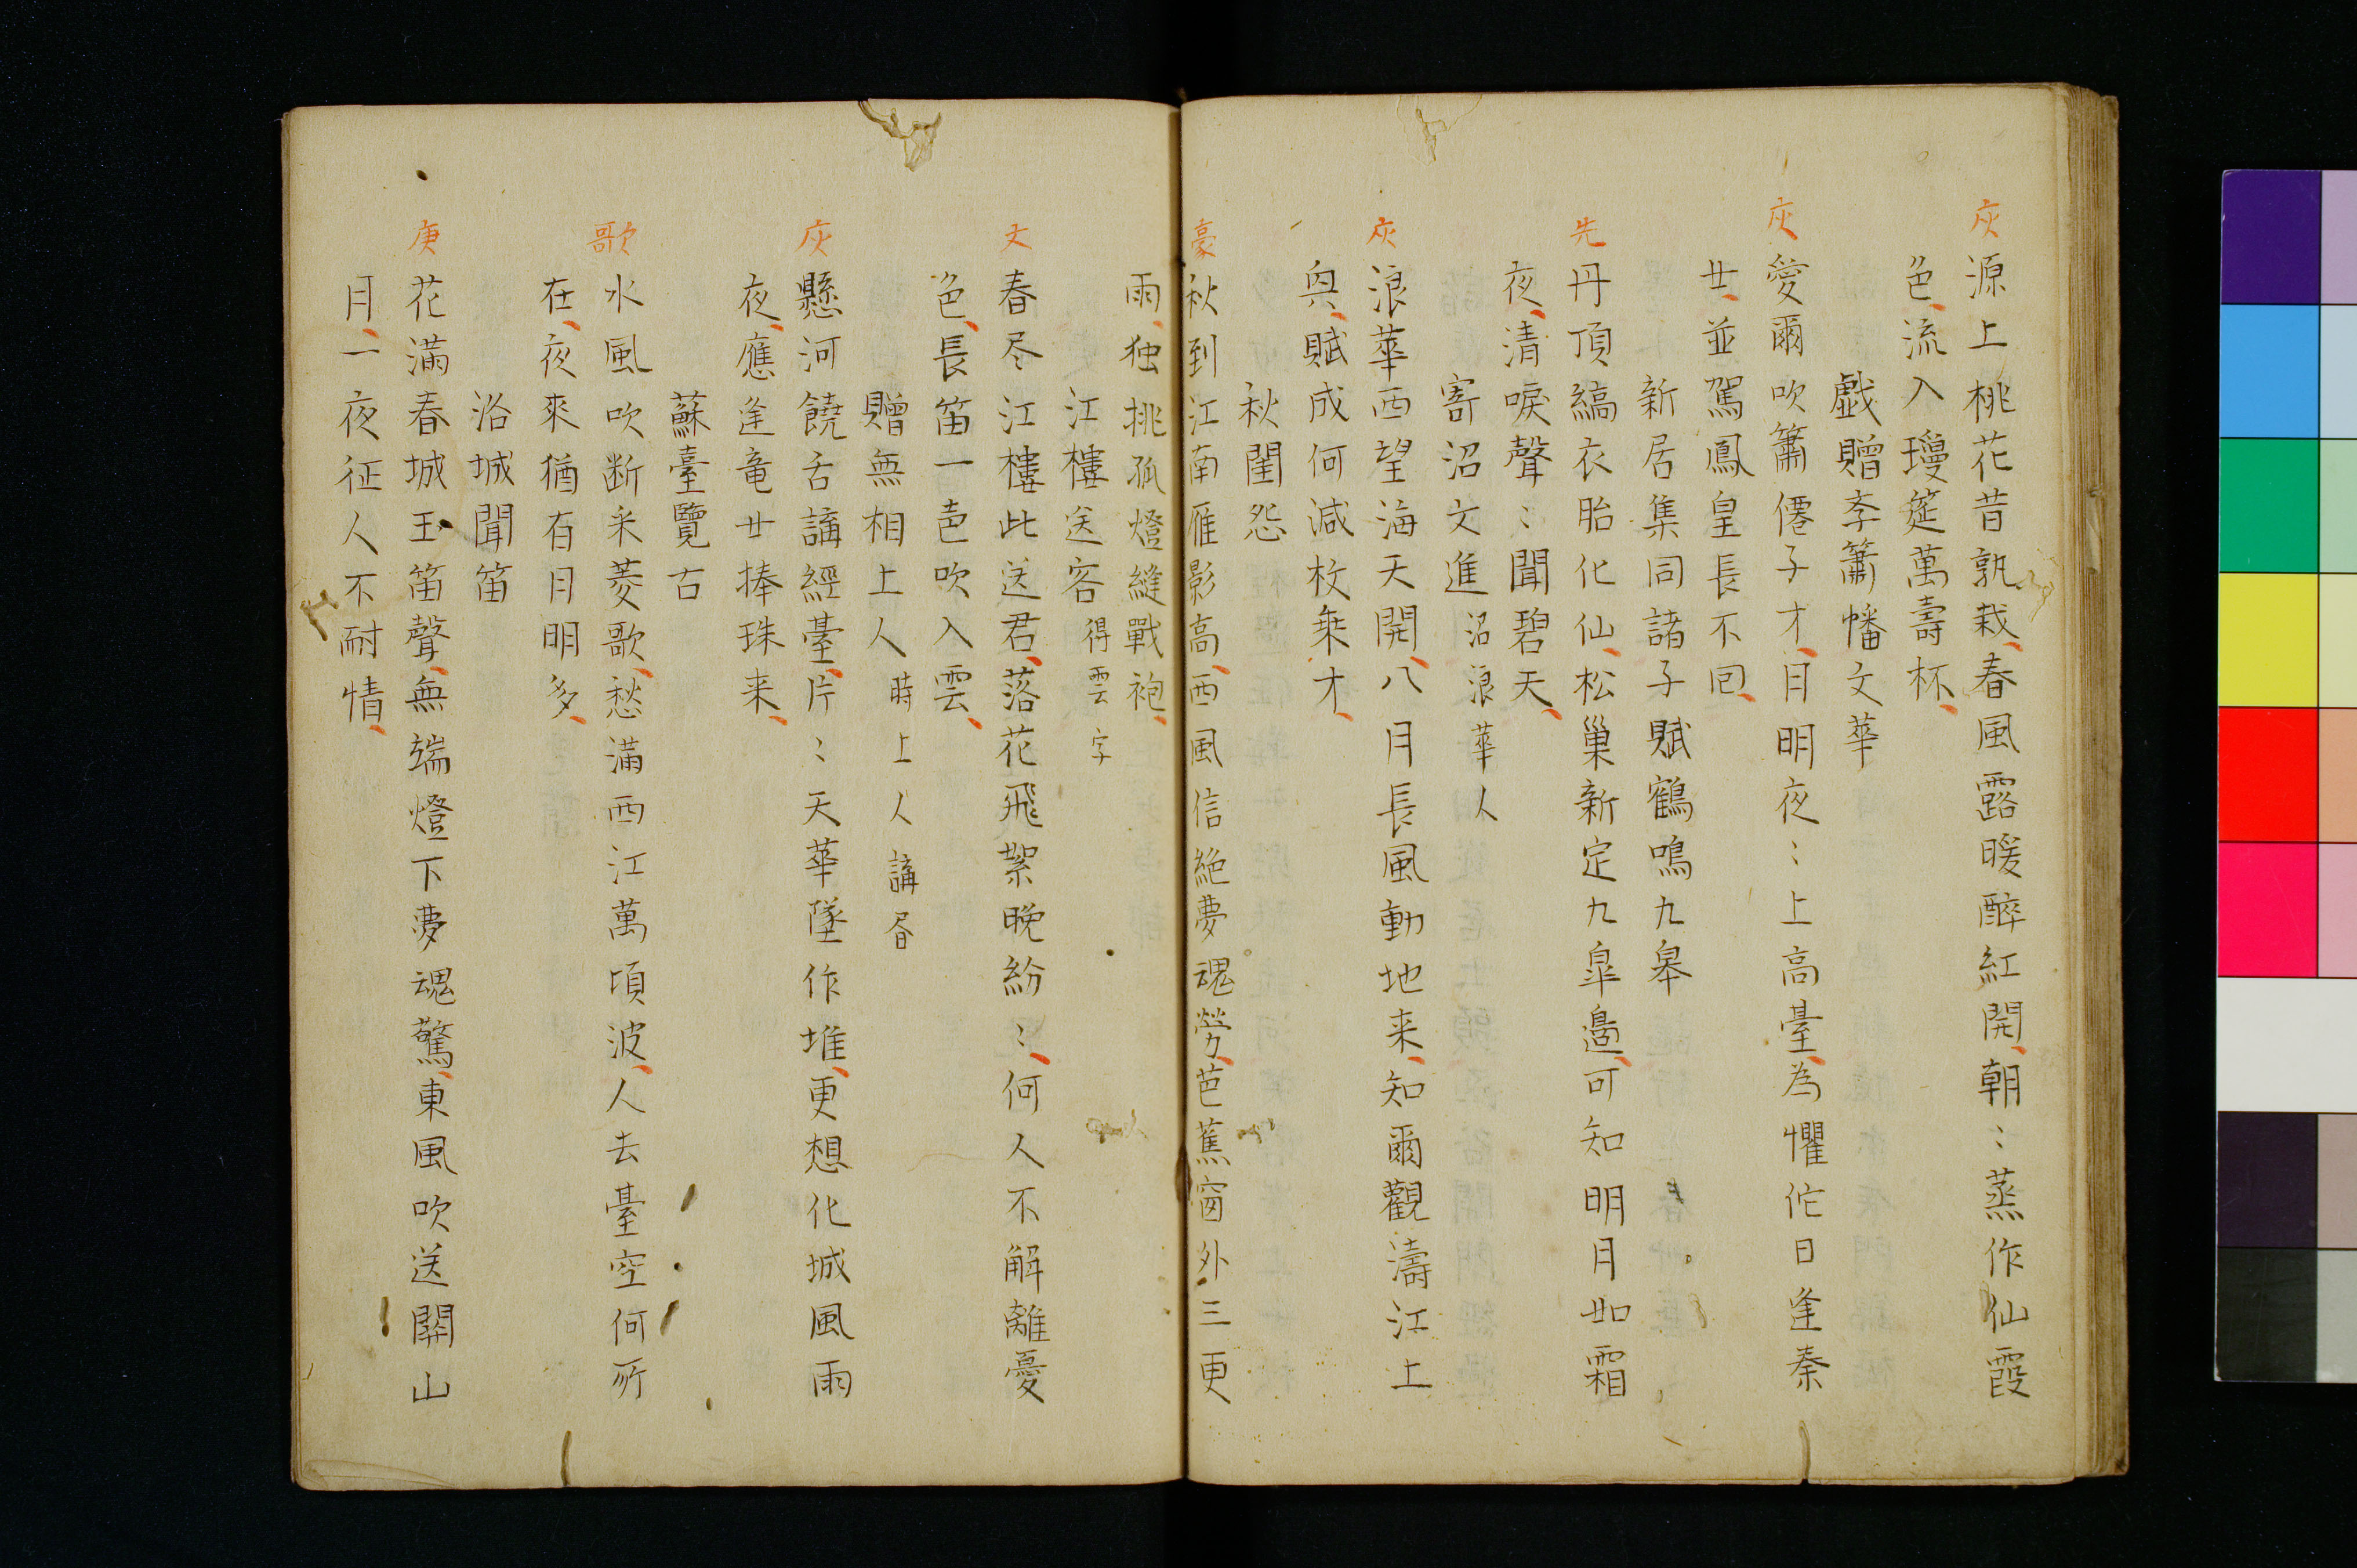 灰 源上桃花昔孰栽春風露暖醉紅開朝〻蒸作仙霞
色流入瓊筵萬壽杯
戯贈李簫幡文華
灰 愛爾吹簫僊子才月明夜〻上高臺為懼佗日逢秦
女並駕鳳皇長不囘
新居集同諸子賦鶴鳴九皋
先 丹頂縞衣胎化仙松巢新定九皐邉可知明月如霜
夜清唳聲〻聞碧天
寄沼文進 沼浪華人
灰 浪華西望海天開八月長風動地来知爾觀濤江上
興賦成何減枚乗才
秋閨怨
豪 秋到江南雁影高西風信絶夢魂勞芭蕉窗外三更
雨独挑孤燈縫戰袍
江樓送客 得雲字
文 春尽江樓此送君落花飛絮晩紛〻何人不解離憂
色長笛一声吹入雲
贈無相上人 時上人講
灰 懸河饒舌講經臺片〻天華墜作堆更想化城風雨
夜應逢竜女捧珠来
蘇臺覽古
歌 水風吹断釆菱歌愁滿西江萬頃波人去臺空何所
在夜來猶有月明多
洛城聞笛
庚 花滿春城玉笛聲無端燈下夢魂驚東風吹送關山
月一夜征人不耐情